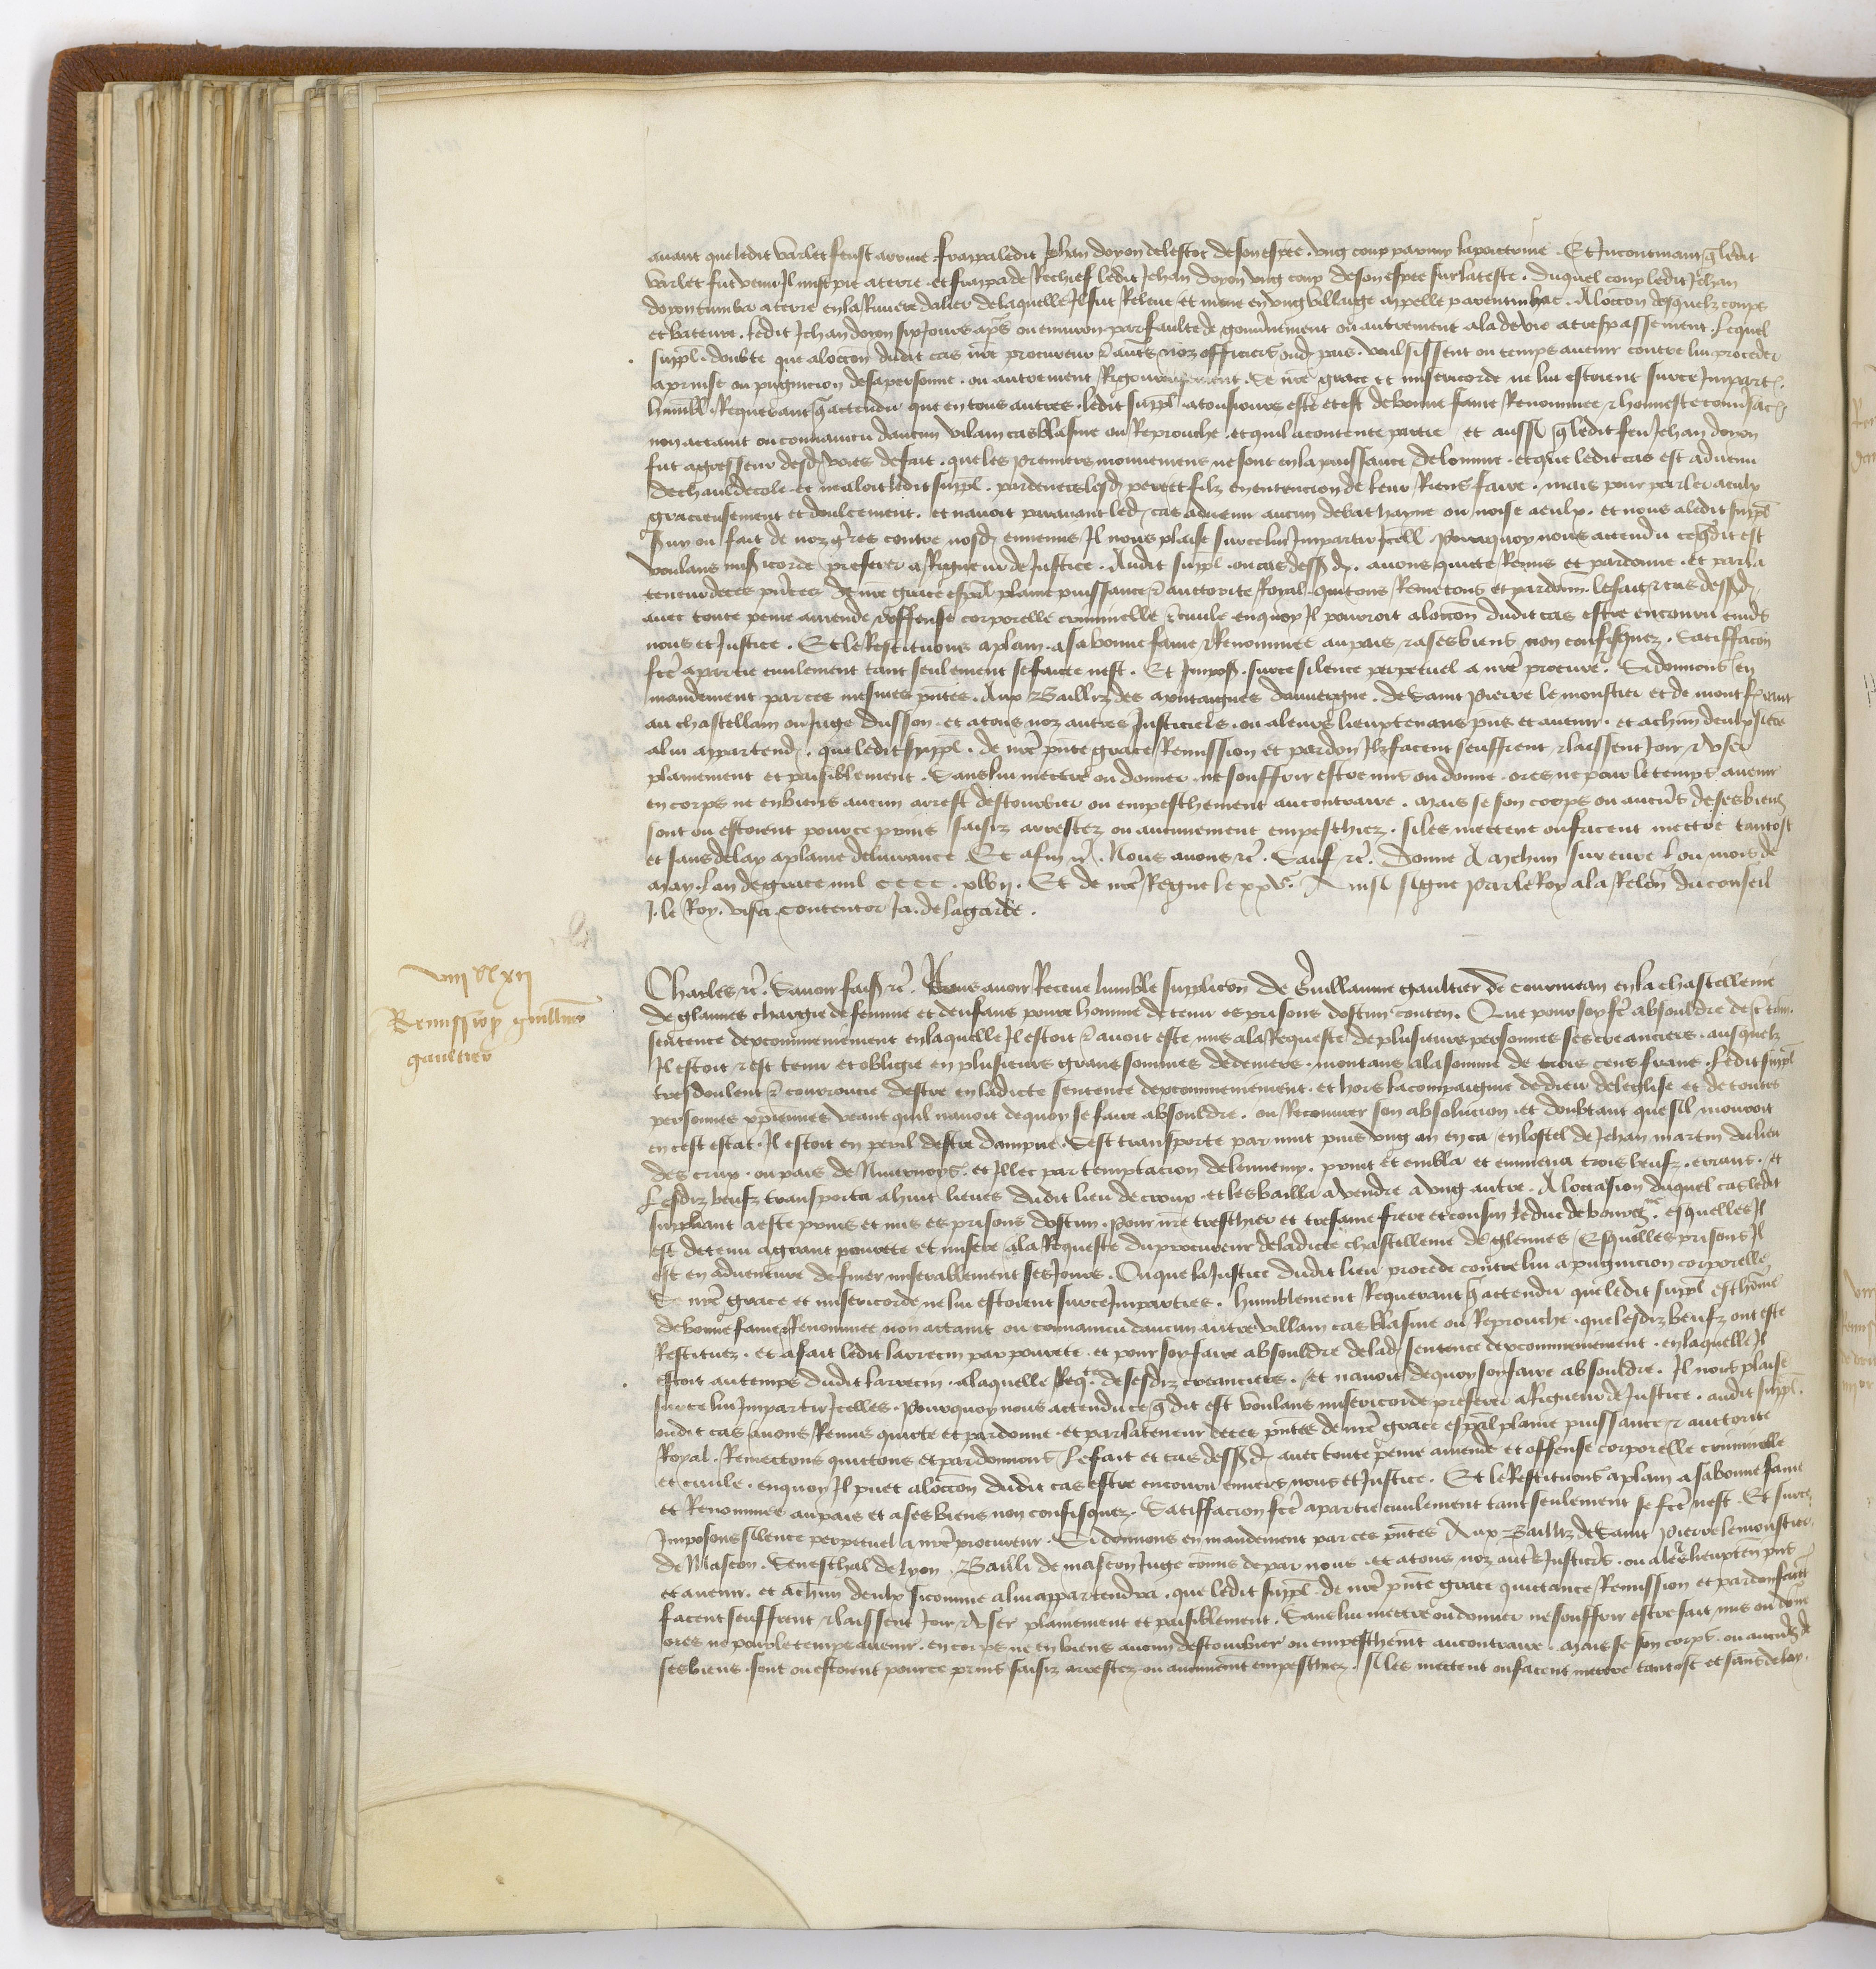 avant que ledit varlet feust arrive frappa ledit Jehan doyon delestoc de son espee ung coup parmy la poictrine . Et Incontinant q̃ ledit
varlet fut venu Il mist pie a terre et frappa de Rechief ledit Jehan doyon ung coup de son espee sur la teste . duquel coup ledit Jehan
doyon tumba a terre en la Riviere dalier de laquelle Il fut Releve et mene en ung villaige appelle parentinhac . A loccon desquelz coups
et bateure . ledit Jehan doyon six Jours apr̃s ou environ par faulte de gouv̾nement ou autrement ala de vie a trespassement . Lequel
suppl̃ . doubte que a loccon dudit cas nr̃e procureur & aut̃s noz officiers oud̾ pais . voulsissent ou temps avenir contre lui proceder
a prinse ou pugnicion de sa personne . ou autrement Rigoureusement . Se nr̃e grace et misericorde ne lui estoient sur ce Impart̾ .
humbl̃ . Requerant q̃ attendu que en tous autres . ledit suppl̃ a tousiours este et est de bonne fame Renommee & honneste conv̾sac̾
non actaint ou convaincu daucun vilain cas blasme ou Reprouche . et quil a contente partie et aussi q̃ ledit feu Jehan doyon
fut agresseur desd̾ voies de fait . que les premiers mouvemens ne sont en la puissance de lomme . et que ledit cas est advenu
de chaulde cole et naloit ledit suppl̃ . par devers lesd̾ pere et filz en entencion de leur Riens faire . mais pour parler a eulx
gracieusement et doulcement . et navoit paravant led̾ cas advenu aucun debat hayne ou noise a eulx . et nous a ledit suppl̃
s̾vy ou fait de noz gr̃es contre nosd̾ ennemis Il nous plaise sur ce lui Impartir Icell̃ Pourquoy nous attendu ce q̃ dit est
voulans mis̾icorde preferer a Rigueur de Justice . Audit suppl̃ ou cas dess̾d̾ . avons quicte Remis et pardonne . et par la
teneur de ces pñtes de nr̃e grace esp̃al plaine puissance & auctorite Royal quitons Remetons et pardonn̾ . le fait & cas dess̾d̾
avec toute peine amende & offense corporelle criminelle & civile en quoy Il pourroit a loccon dudit cas estre encouru env̾s
nous et Justice . Et le Restituons a plain . a sa bonne fame & Renommee au pais & a ses biens non confisquez . Satiffacõn
fc̃e a partie civilement tant seulement se faicte nest . Et Impos̾ . sur ce silence perpetuel a nr̃e procure̾ . Si donnons en
mandement par ces mesmes pñtes . Aux Bailliz des montaignes dauvergne . de Saint Pierre le monstier et de mont ferrant
au chastellain ou Juge dusson . et a tous noz autres Justiciers . ou a leurs lieuxtenans pñs et avenir . et a ch̃un deulx si c̃e
a lui appartend̾ . que ledit suppl̃ . de nr̃e pñte grace Remission et pardon Ilz facent seuffrent & laissent Joir & User
plainement et paisiblement . Sans lui mettre ou donner . ne souffrir estre mis ou donne . ores ne pour le temps avenir
en corps ne en biens aucun arrest destourbier ou empeschement au contraire . mais se son corps ou aucũs de ses biens
sont ou estoient pour ce prins saisiz arrestez ou aucunement empeschiez . si les mettent ou facent mettre tantost
et sans delay a plaine delivrance Et afin &c̃ . Nous avons &c̃ . Sauf &c̃ . Donne A Mehun sur evre l ou mois de
May . Lan de grace mil cccc . xlvii . Et de nr̃e Regne le xxve . Ainsi signe Par le Roy a la Relcõn du conseil
J . le Roy . visa . Contentor Ja . de lagarde .
viii xx xii
Remission guillme
gaultier
Charles &c̃ . Savoir fais̾ &c̃ . Nous avoir Receue lumble supplicõn de Guillaume gaultier de Courniean en la chastellenie
de glannes chargie de femme et denfans povre homme detenu es prisons dostun conten̾ . Que pour soy fc̃e absouldre de c̾tain̾
sentence dexcommeniement en laquelle Il estoit & avoit este mis a la Requeste de plusieurs personnes ses creanciers . ausquelz
Il estoit & est tenu et obligie en plusieurs grans sommes de deniers . montans a la somme de trois cens frans . Ledit suppl̃
tres doulent & courroucie destre en ladicte sentence dexcommeniement . et hors la compaignie de dieu de leglise et de toutes
personnes xp̃iennes veant quil navoit de quoy se faire absouldre . ou Recouvrer son absolucion et doubtant que sil mouroit
en cest estat . Il estoit en peril destre dampne . Sest transporte par nuit puis ung an en ca en lostel de Jehan martin du lieu
des crux . ou pais de Nivernoys . et Illec par temptacion de lennemy . print et embla et enmena trois beufz . errans . et
Lesdiz beufz transporta a huit lieues dudit lieu de croux . et les bailla a vendre a ung autre . A loccasion duquel cas ledit
suppliant a este prins et mis es prisons dostun . pour nr̃e treschier et tresame frere et cousin le duc de bourg̾ne . esquelles Il
est detenu a grant povrete et misere a la Requeste du procureur de ladicte chastellenie de glennes Esquelles prisons Il
est en adventure de finer miserablement ses Jours . Ou que la Justice dudit lieu procede contre lui a pugnicion corporelle
Se nr̃e grace et misericorde ne lui estoient sur ce Imparties . humblement Requerant q̃ attendu que ledit suppl̃ est hõme
de bonne fame & Renommee non actaint ou convaincu daucun autre villain cas blasme ou Reprouche . que lesdiz beufz ont este
Restituez . et a fait ledit larrecin par povrete . et pour soy faire absouldre de lad̾ sentence dexcommeniement . en laquelle Il
estoit au temps dudit larrecin . a laquelle Req̃te . de sesdiz creanciers . et navoit de quoy soy faire absouldre . Il nous plaise
sur ce lui Impartir Icelles . Pourquoy nous attendu ce q̃ dit est voulans misericorde preferer a Rigueur de Justice . audit suppl̃ .
oudit cas avons Remis quicte et pardonne . et par la teneur de ces pñtes de nr̃e grace esp̃al plaine puissance & auctorite
Royal . Remectons quictons et pardonnons Le fait et cas dess̾d̾ avec toute peine amende et offense corporelle criminelle
et civile . en quoy Il puet a loccon dudit cas estre encouru envers nous et Justice . Et le Restituons a plain a sa bonne fame
et Renommee au pais et a ses biens non confisquez . Satiffacion fc̃e a partie civilement tant seulement se fc̃e nest . Et sur ce
Imposons silence perpetuel a nr̃e procureur . Si donnons en mandement par ces pñtes Aux Bailliz de Saint Pierre le monstier
de Mascon . Seneschal de lyon . Bailli de mascon Juge cõmis de par nous . et a tous noz aut̃s Justic̃rs . ou a le̾s lieuxten̾ pñs
et avenir . et a ch̃un deulx si comme a lui appartendra . que ledit suppl̃ de nr̃e pñte grace quictance Remission et pardon
facent seuffrent & laissent Joir & User plainement et paisiblement . Sans lui mettre ou donner ne souffrir estre fait mis ou dõne
ores ne pour le temps avenir . en corps ne en biens aucun destourbier ou empeschem̃t au contraire . mais se son corps . ou aucũs de
ses biens . sont ou estoient pour ce prins saisiz arrestez ou aucunem̃t empeschiez . si les mectent ou facent mettre tantost et sans delay .